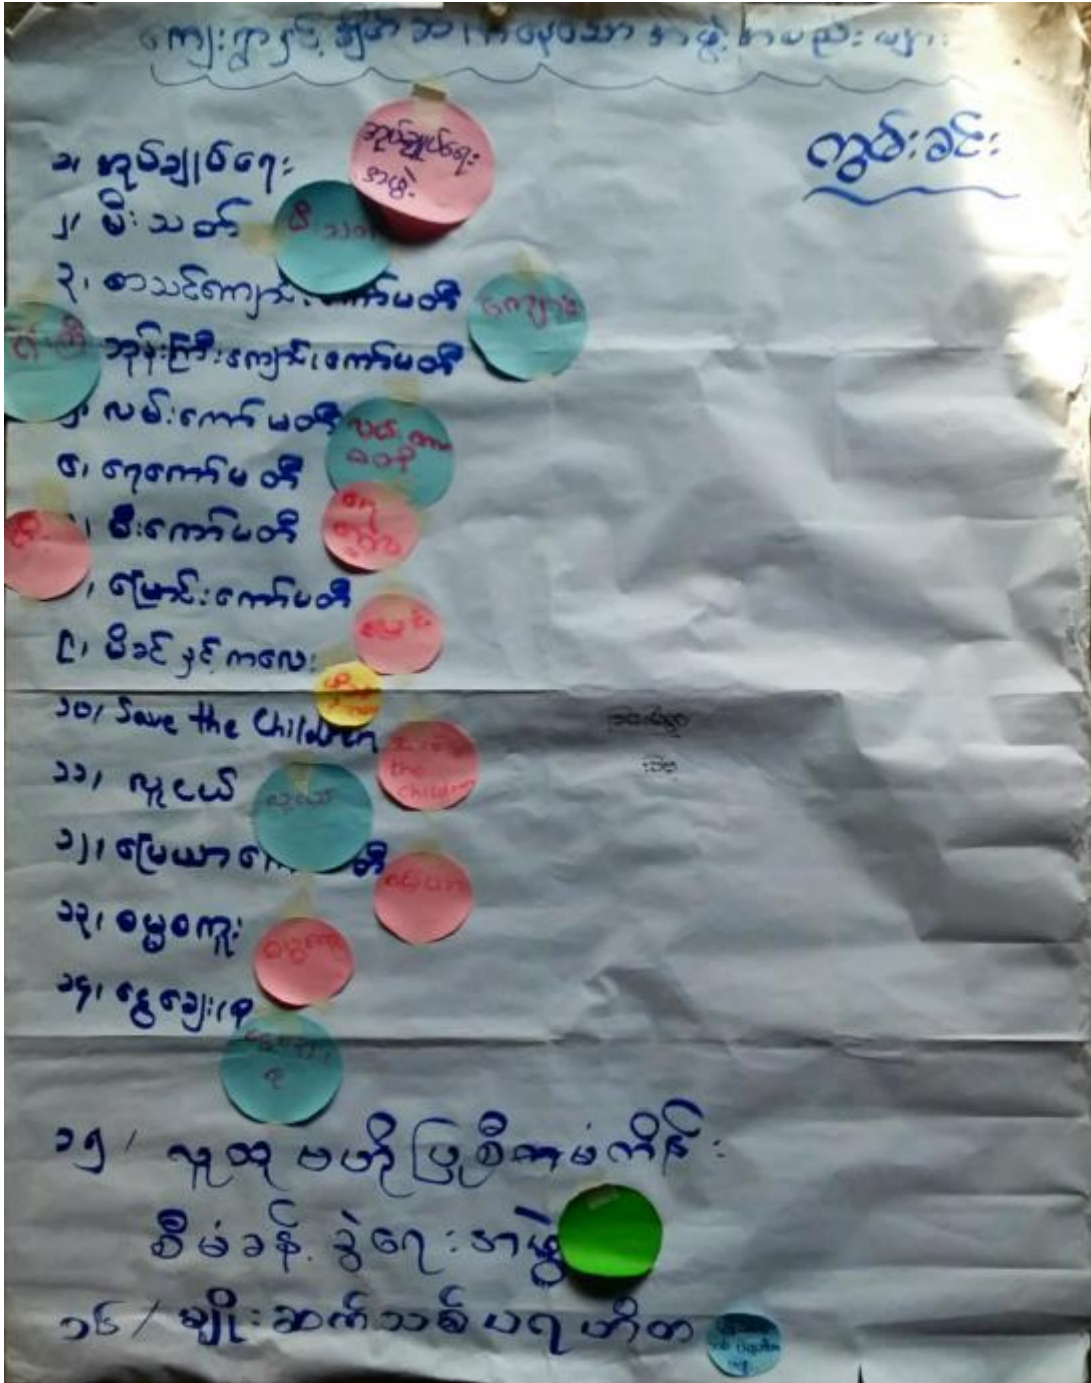 ကျေးရွာနှင့် ချိတ်ဆက်နေသော အဖွဲ့အစည်းများ
ကွမ်းခင်း
၁၊ အုပ်ချုပ်ရေး
အုပ်ချုပ်ရေး
အဖွဲ့
၂၊ မီးသတ်
၃၊ စာသင်ကျောင်းကော်မတီ
ကျောင်း
ဘုန်းကြီးကျောင်းကော်မတီ
၅၊ လမ်းကော်မတီ
၆၊ ရေကော်မတီ
ရေ
မီးကော်မတီ
မြောင်းကော်မတီ
၉၊ မိခင်နှင့်ကလေး
၁၀၊ Save the Children
the
children
၁၁၊ လူငယ်
လူငယ်
၁၂၊ မြေယာကော်မတီ
မြေယာ
၁၃၊ ဓမ္မစကူး
ဓမ္မစကူး
၁၄၊ ငွေချေးစု
၁၅/ လူထုဗဟိုပြုစီမံကိန်း
စီမံခန့်ခွဲရေးအဖွဲ့
၁၆/ မျိုးဆက်သစ်ပရဟိတ